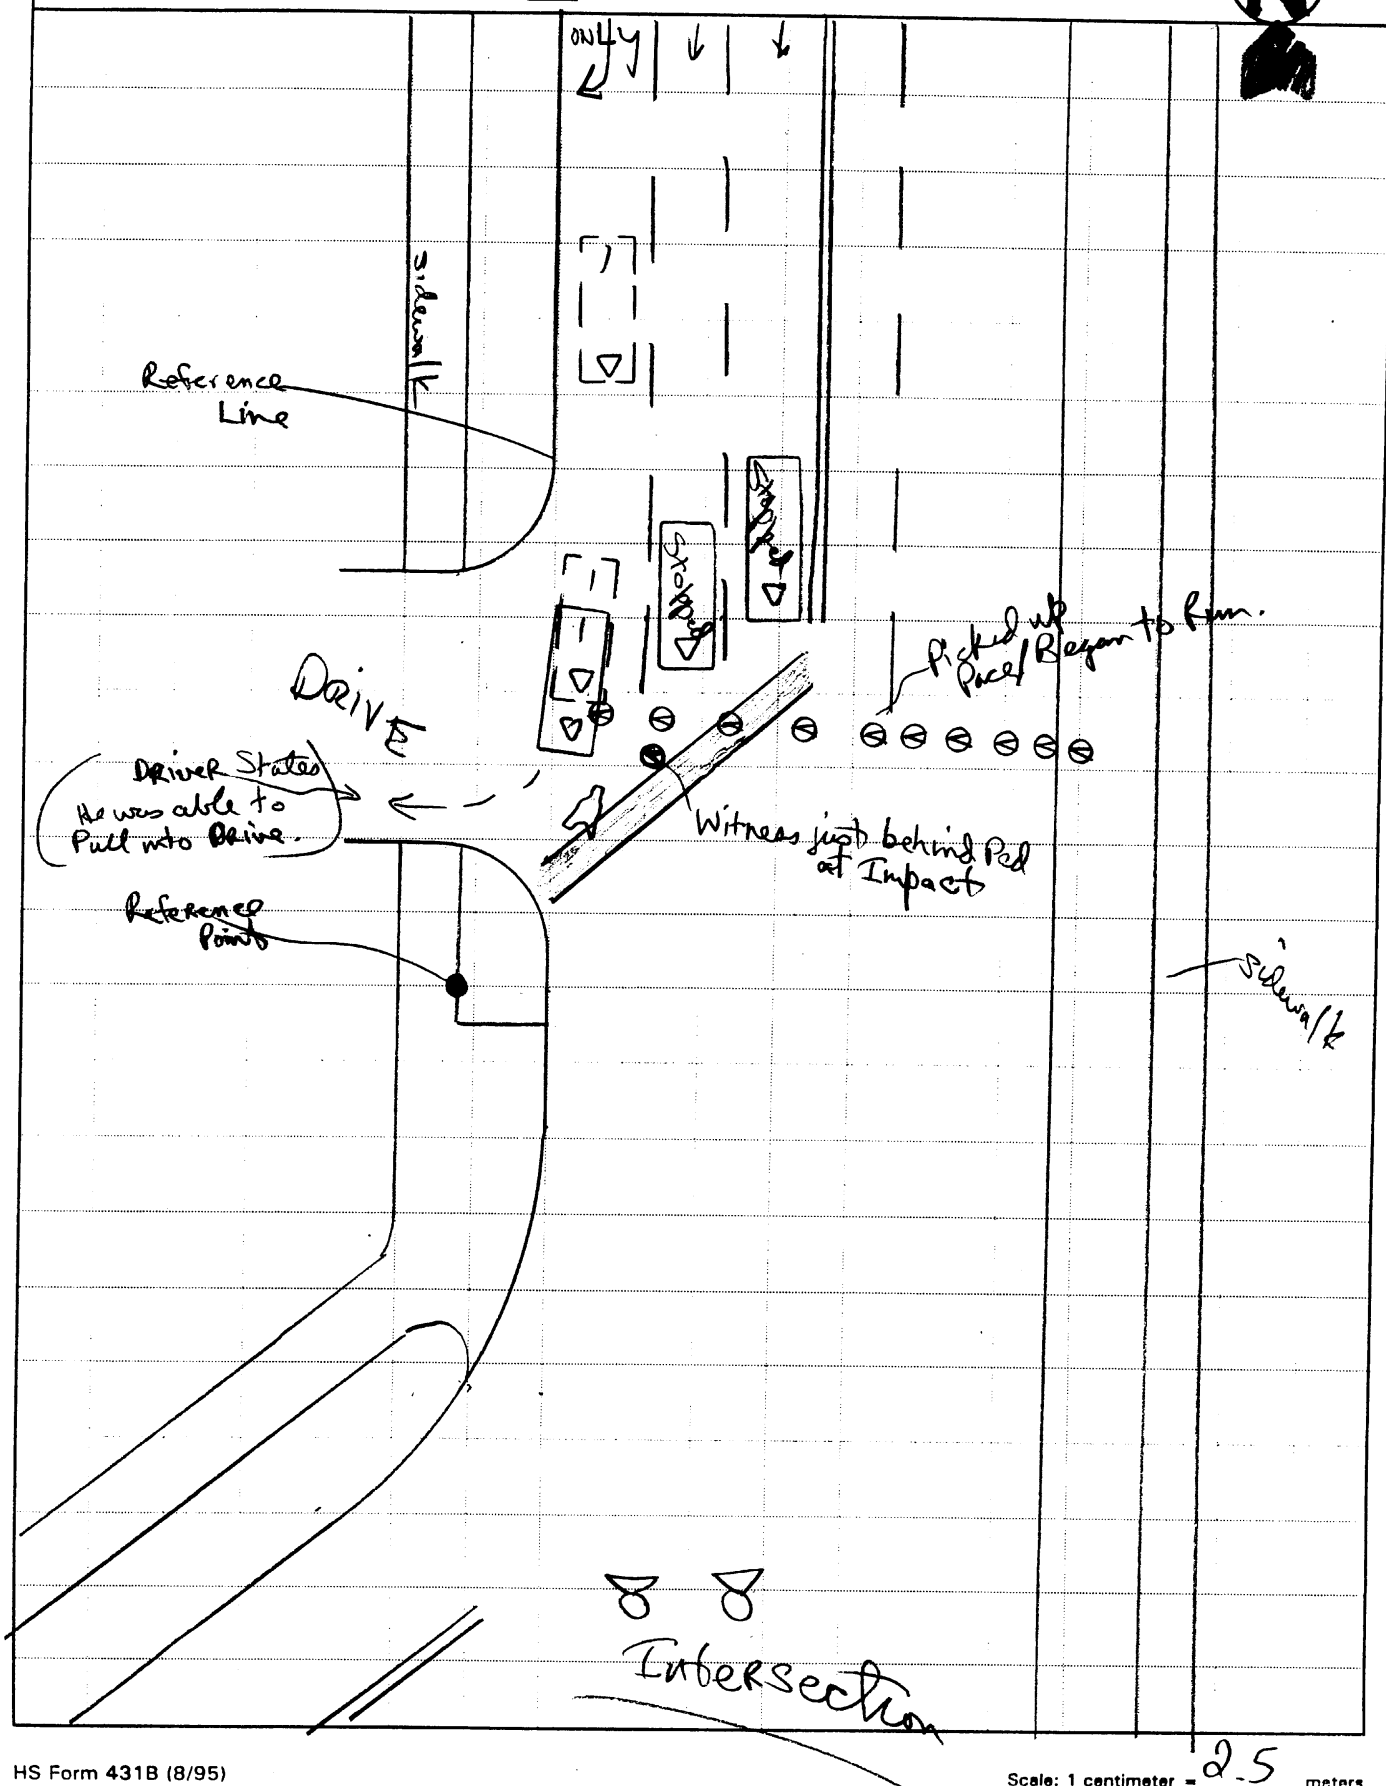 ONLY
sidewalk
Reference
Line
Stopped
Stopped
Picked up
Pace/Began to Run.
DRIVE
DRIVER States
He was able to
Pull into Drive.
Witness just behind Ped
at Impact
Reference
Point
sidewalk
Intersection
HS Form 431B (8/95)
Scale: 1 centimeter = 2.5 meters